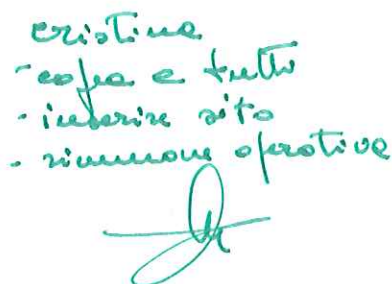 cristina
- copia a tutti
- inserire sito
- riunione operativa